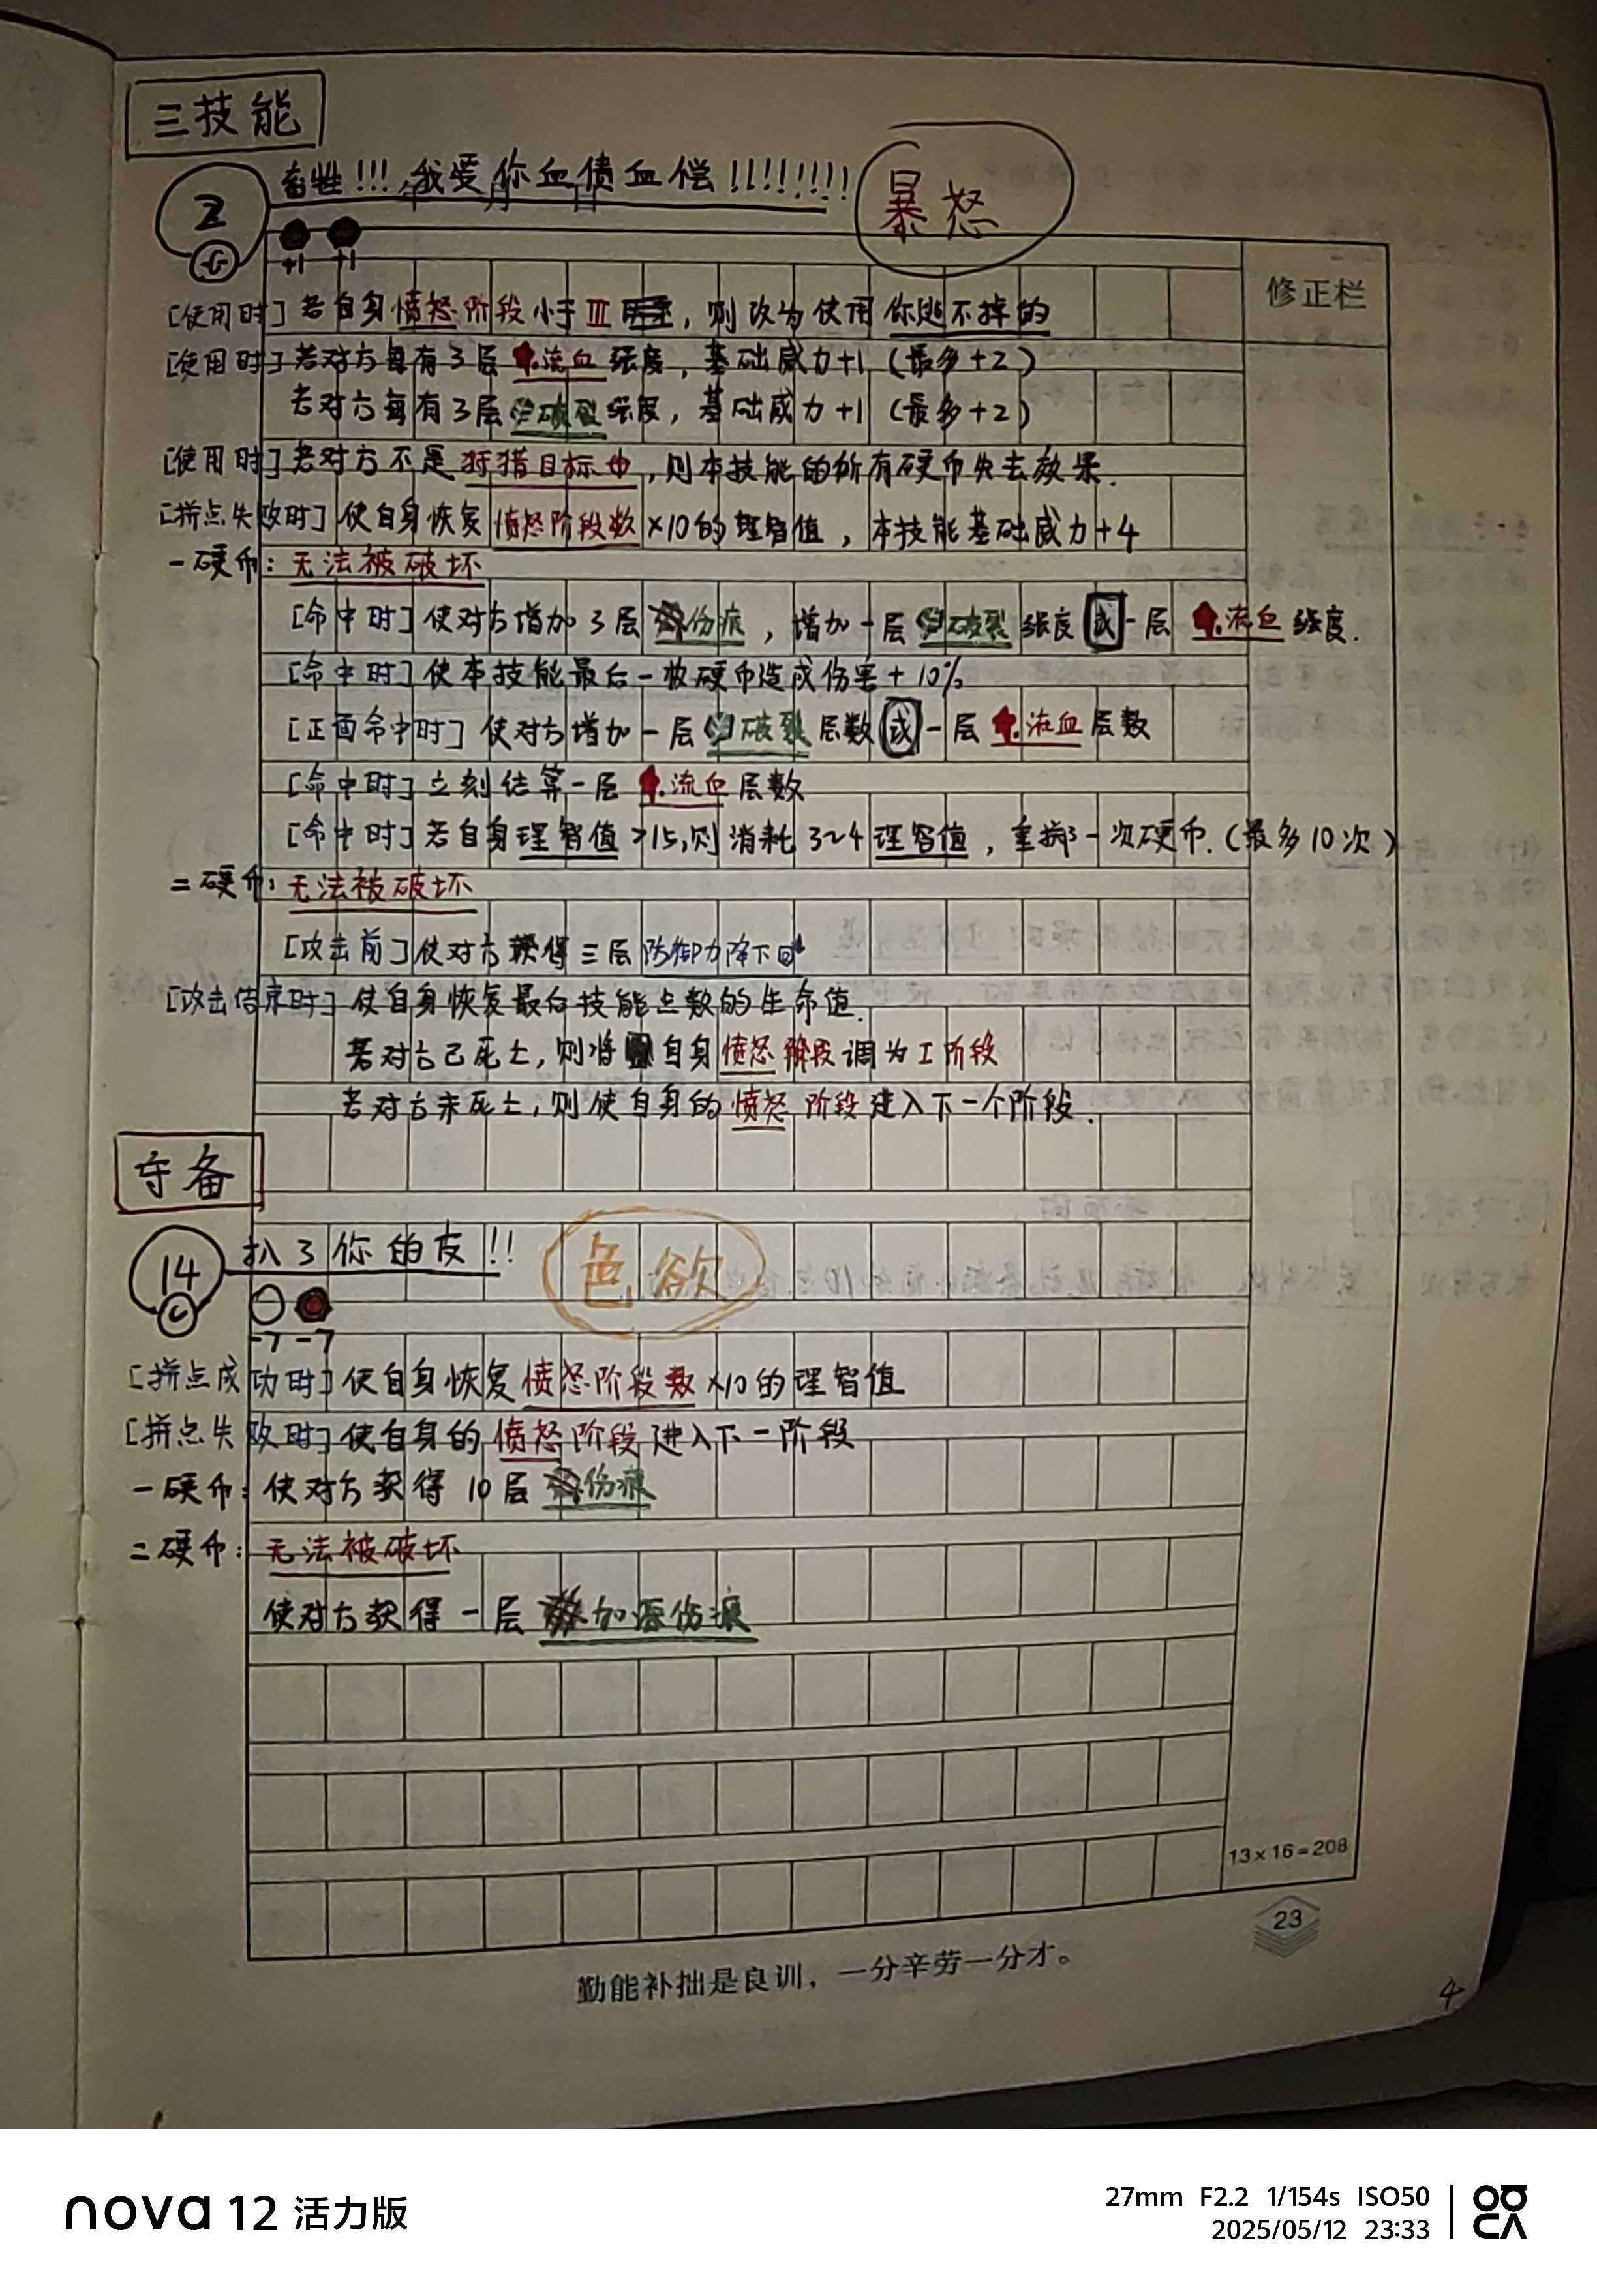 三技能
2
畜牲!!! 我要你血债血偿!!!!!!!!
暴怒
年 月 日
+1 +1
修正栏
[使用时]若自身愤怒阶段小于III,则改为使用你逃不掉的
[使用时]若对方每有3层流血强度,基础威力+1(最多+2)
若对方每有3层破裂强度,基础威力+1(最多+2)
[使用时]若对方不是狩猎目标,则本技能的所有硬币失去效果.
[拼点失败时]使自身恢复愤怒阶段数×10的理智值,本技能基础威力+4
一硬币:无法被破坏
[命中时]使对方增加3层伤痕,增加一层破裂强度或一层流血强度.
[命中时]使本技能最后一枚硬币造成伤害+10%
[正面命中时]使对方增加一层破裂层数或一层流血层数
[命中时]立刻结算一层流血层数
[命中时]若自身理智值>15,则消耗3~4理智值,重掷一次硬币.(最多10次)
二硬币:无法被破坏
[攻击前]使对方获得三层防御力降下
[攻击结束时]使自身恢复最后技能点数的生命值.
若对方已死亡,则将自身愤怒阶段调为I阶段
若对方未死亡,则使自身的愤怒阶段进入下一个阶段.
守备
14
扒了你的皮!!
色欲
-7 -7
[拼点成功时]使自身恢复愤怒阶段数×10的理智值
[拼点失败时]使自身的愤怒阶段进入下一阶段
一硬币:使对方获得10层伤痕
二硬币:无法被破坏
使对方获得一层加深伤痕
13×16=208
23
勤能补拙是良训,一分辛劳一分才。
4
nova 12 活力版
27mm F2.2 1/154s ISO50
2025/05/12 23:33